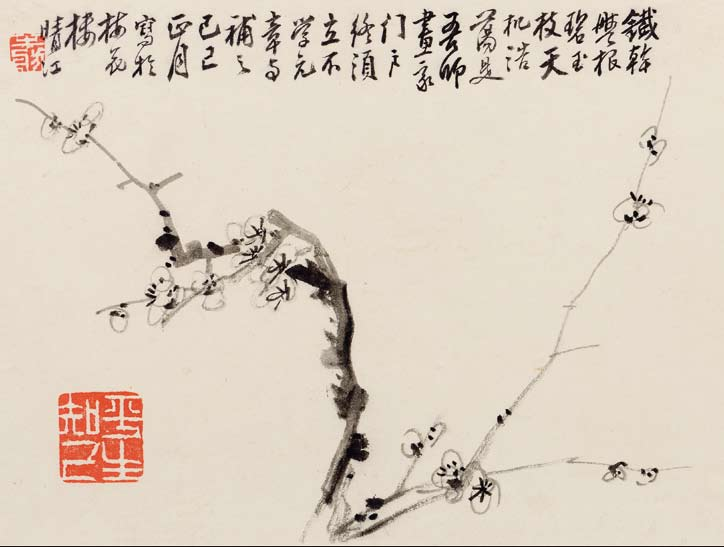 鐵幹
根
碧玉
枝天
机浩
蕩是
吾師
畫家
门戶
終須
立不
学元
章与
補之
己巳
正月
寫於
梅花
樓
晴江
平生
知己